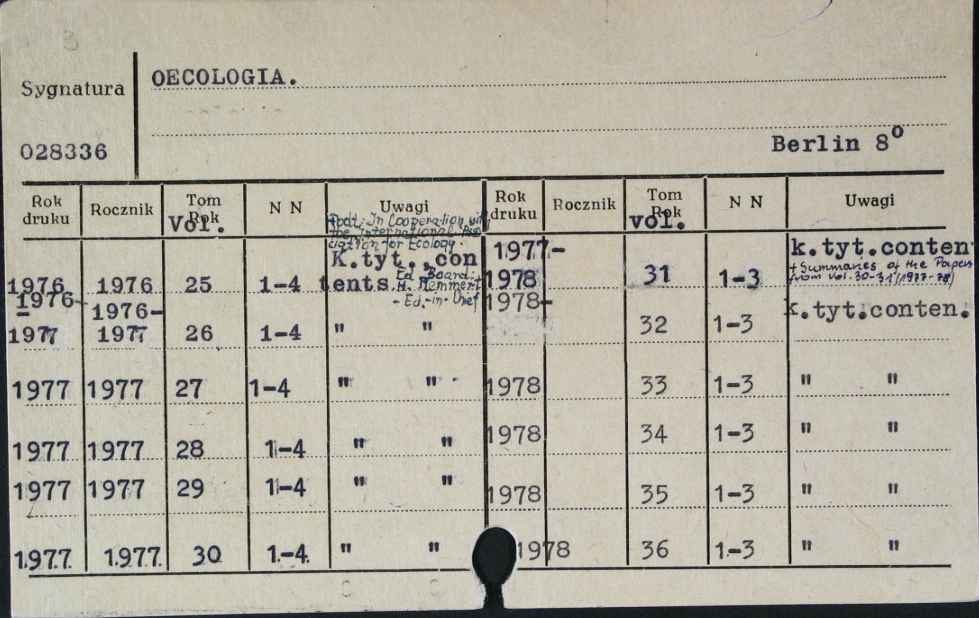 OECOLOGIA.
Sygnatura
028336
Berlin 8°
Rok druku Rocznik Tom Rok Vol. N N Uwagi Rok druku Rocznik Tom Rok Vol. N N Uwagi
Podt: In Cooperation with
the International Asso
ciation for Ecology.
K.tyt.,con
tents. Ed. Board:
H. Remmert
- Ed.-in-Chef
1976 1976 25 1-4
1976-
1977 1976-
1977 26 1-4 " "
1977 1977 27 1-4 " "
1977 1977 28 1-4 " "
1977 1977 29 1-4 " "
1977 1977 30 1-4 " "
1977-
1978 31 1-3 k.tyt.conten
+ Summaries of the Papers
from Vol. 30-31 (1977-78)
1978- 32 1-3 k.tyt.conten.
1978 33 1-3 " "
1978 34 1-3 " "
1978 35 1-3 " "
1978 36 1-3 " "